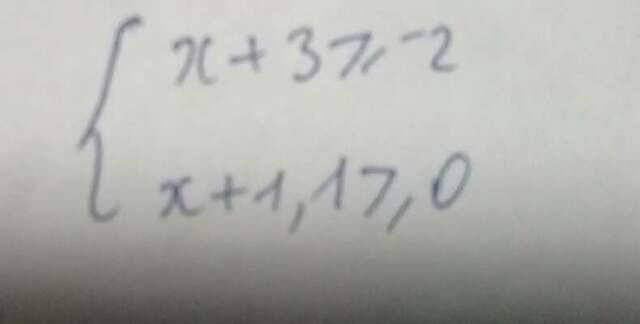 x + 3 ⩾ -2
x + 1,1 ⩾ 0